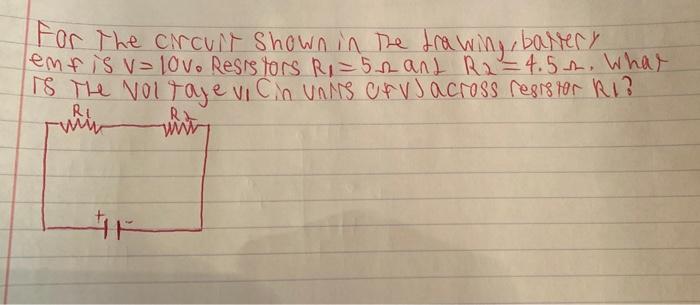 For The circuit shown in The drawing, battery
emf is V = 10V. Resistors R₁ = 5Ω and R₂ = 4.5Ω. What
is The Voltage V₁ (in units of V) across resistor R₁?
R₁ R₂
+ -